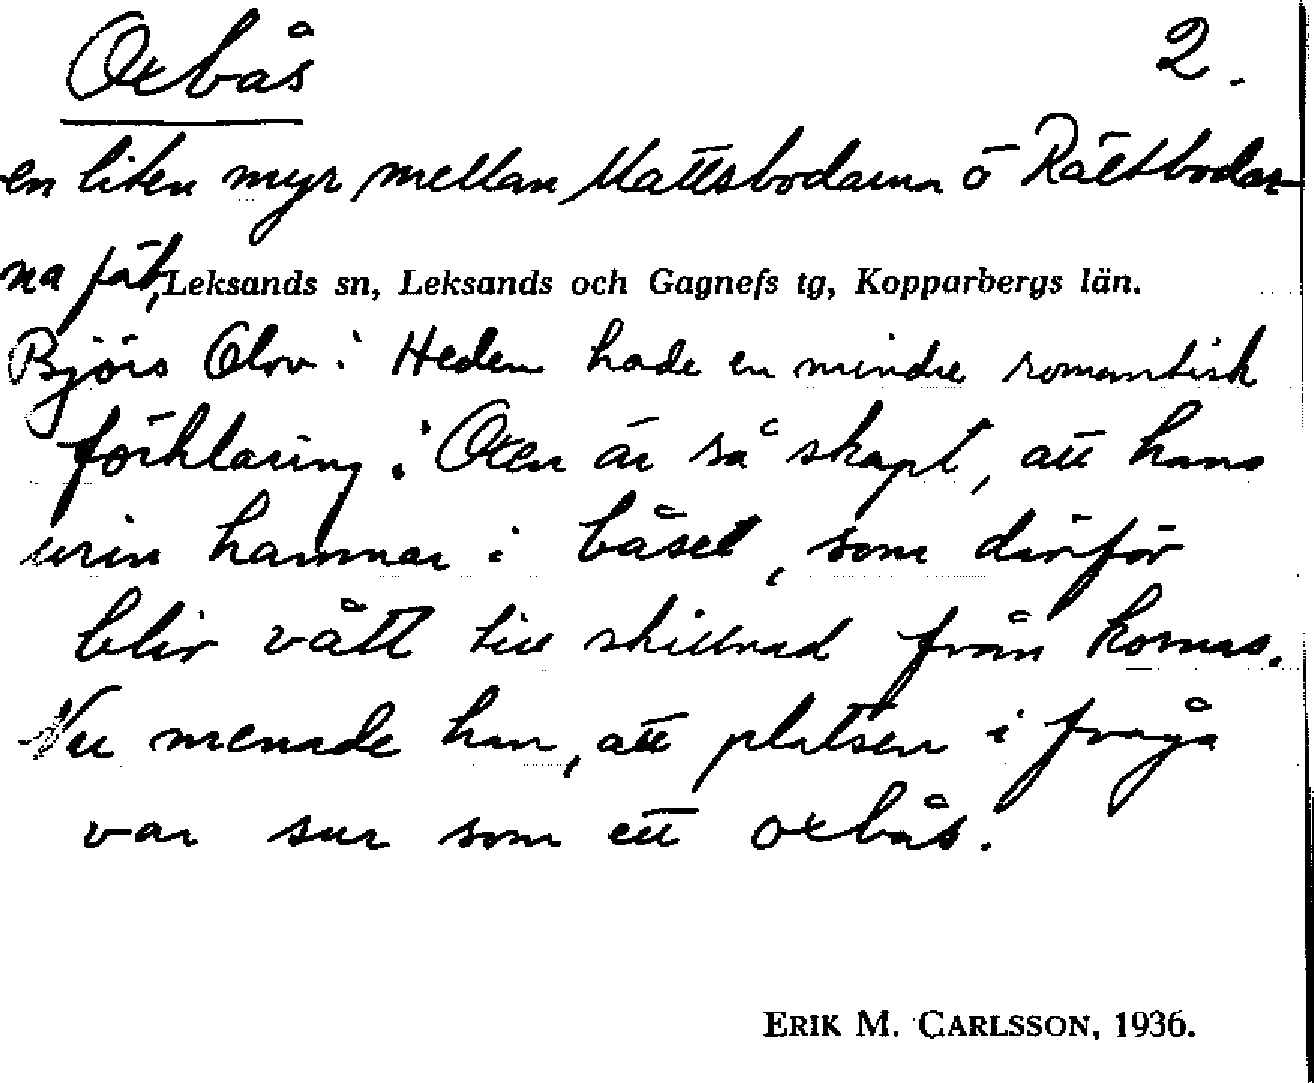 Oxbås 2.
en liten myr mellan Mattsbodarna o Rältbodar-
na fäb, Leksands sn, Leksands och Gagnefs tg, Kopparbergs län.
Björs Olov i Heden hade en mindre romantisk
förklaring: Oxen är så skapt, att hans
urin hamnar i båset, som därför
blir vått till skillnad från kornas.
Nu menade han, att platsen i fråga
var sur som ett oxbås.
ERIK M. CARLSSON, 1936.